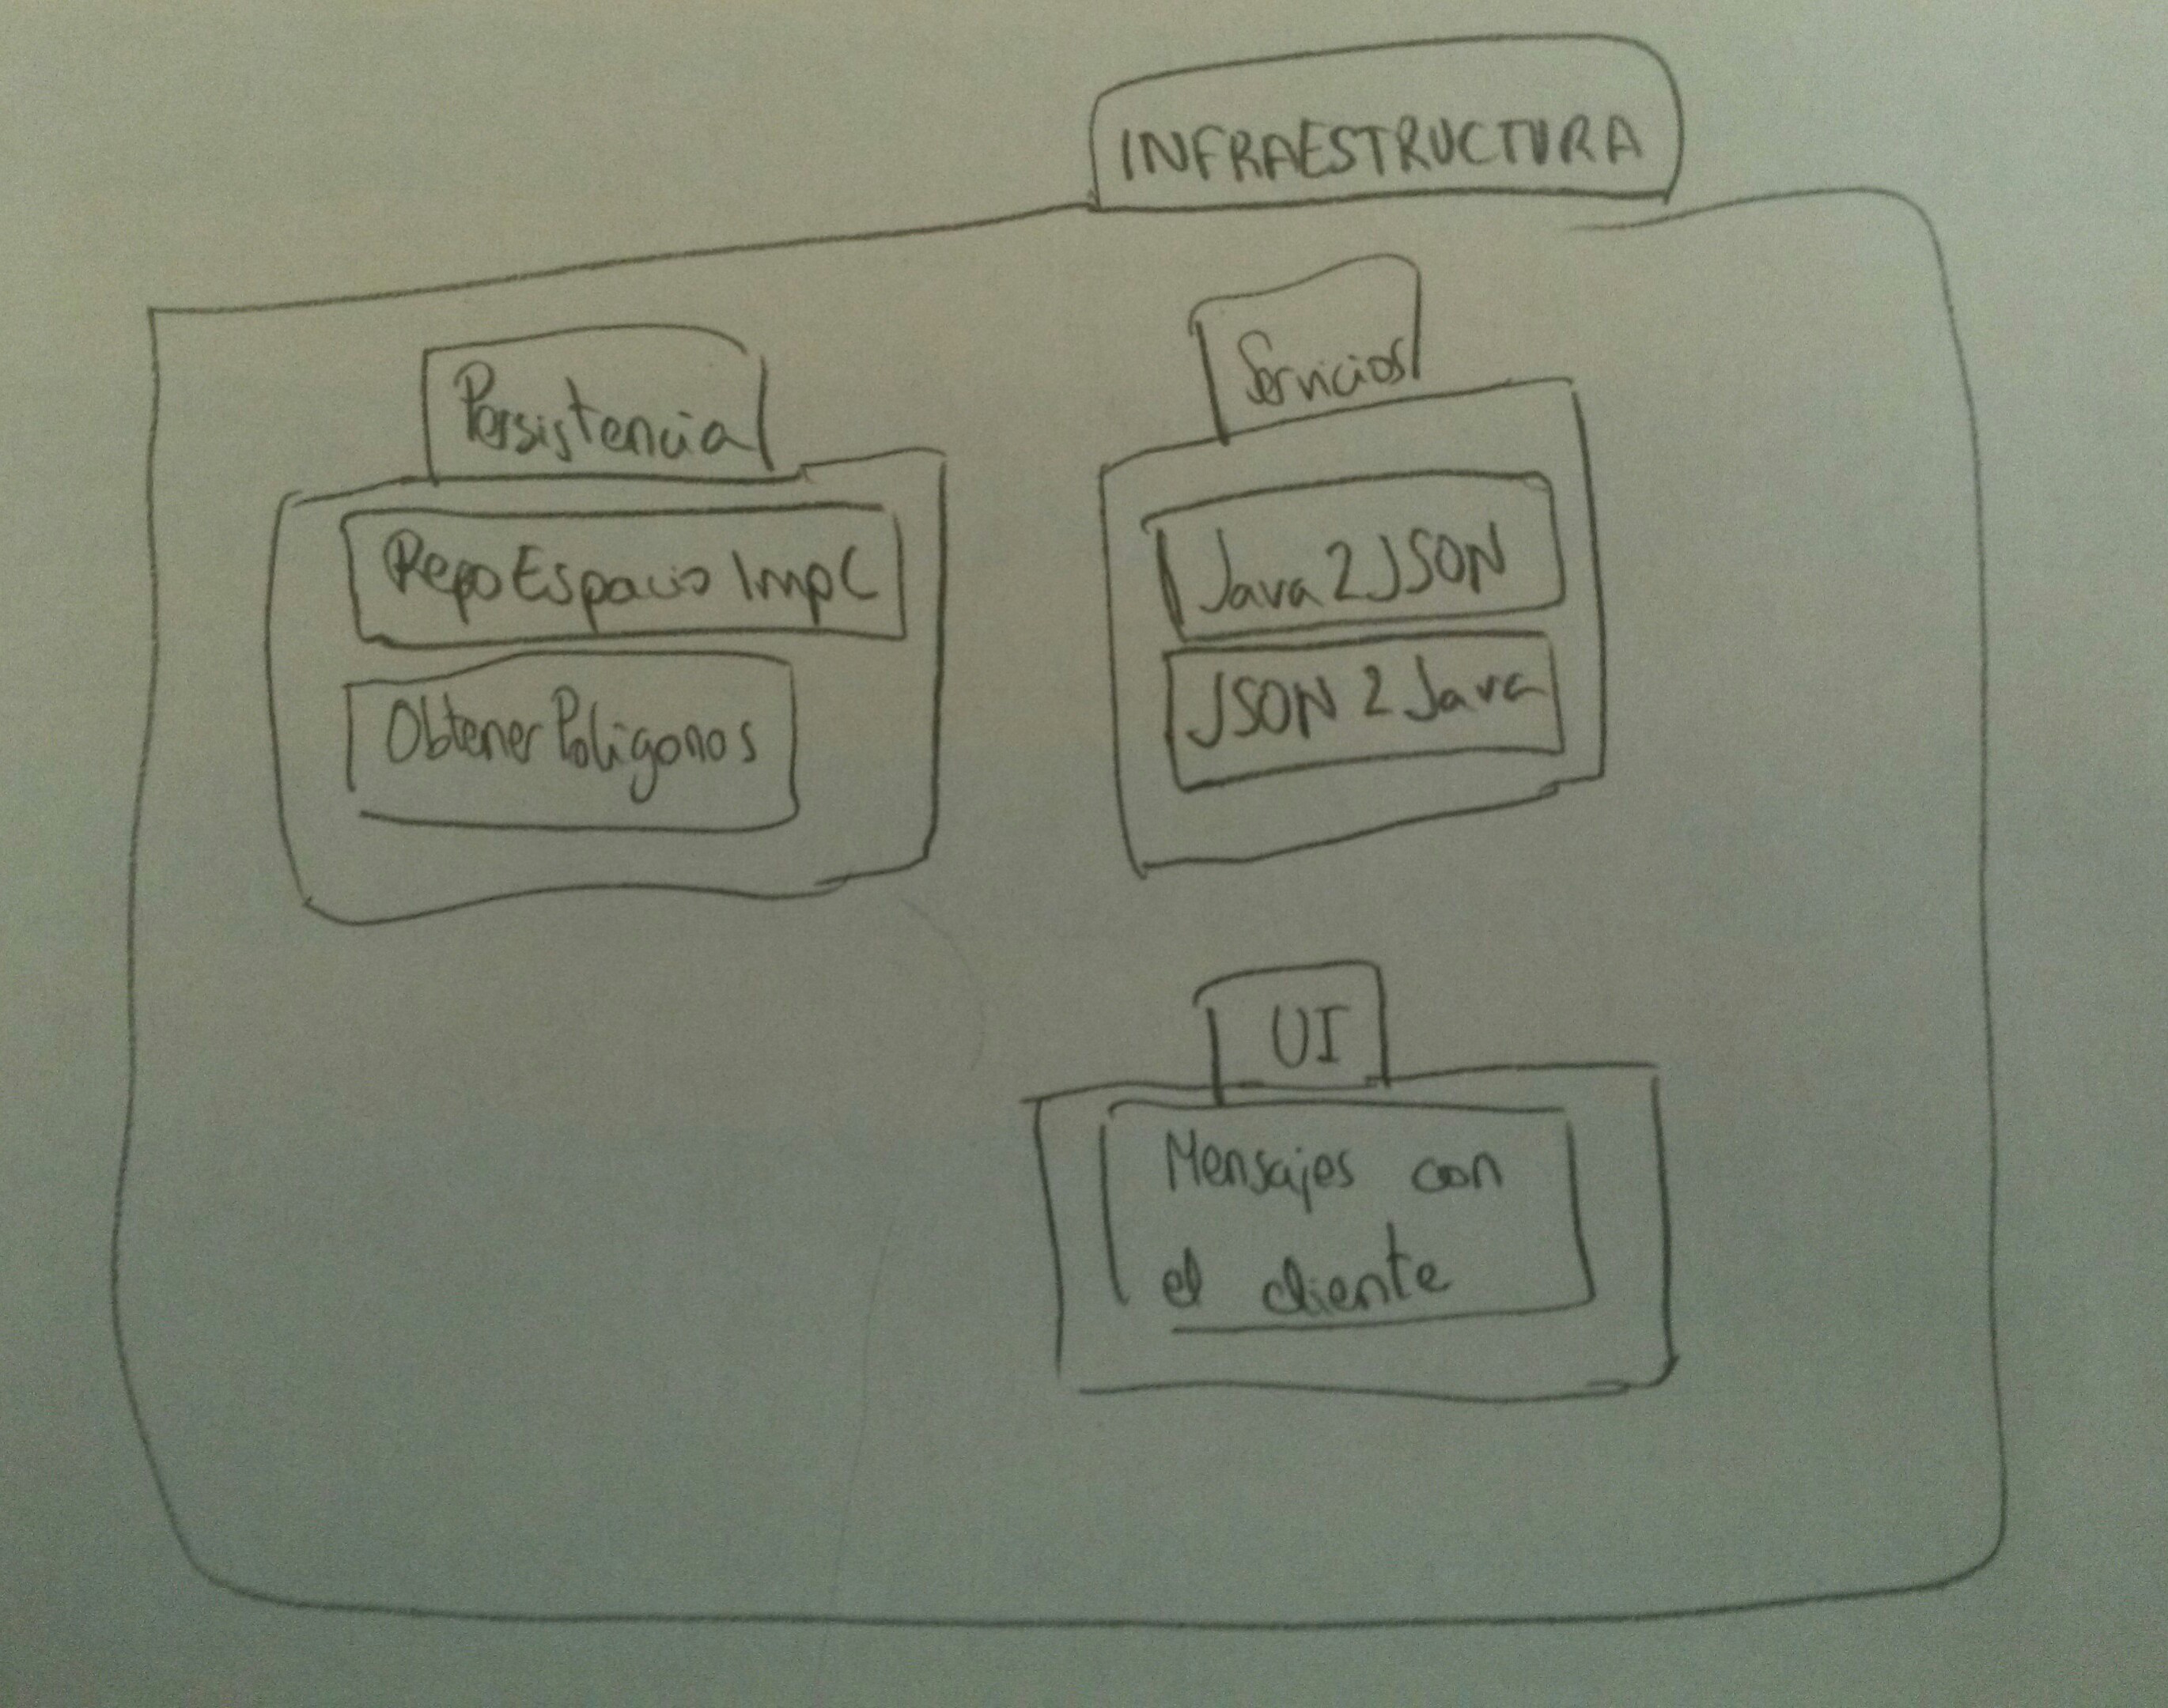 INFRAESTRUCTURA
Persistencia
RepoEspacioImpl
ObtenerPoligonos
Servicios
Java2JSON
JSON2Java
UI
Mensajes con
el cliente